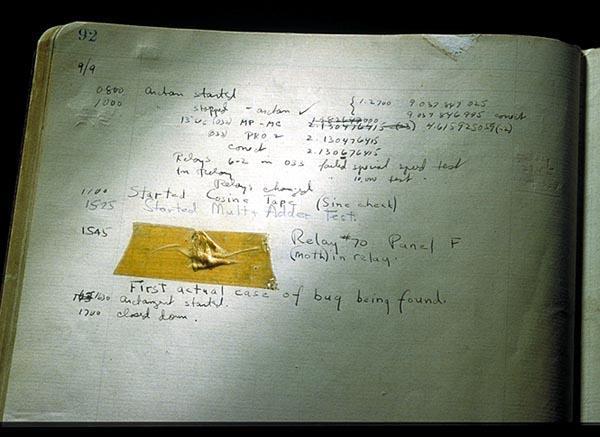 92
9/9
0800 Antan started
1000 " stopped - antan ✓ { 1.2700 9.037 847 025
9.037 846 995 conect
13"uc (032) MP - MC 2.130476415 4.615925059(-2)
(033) PRO 2 2.130476415
conect 2.130676415
Relays 6-2 in 033 failed special speed test
In Relay " 10,000 test "
Relays changed
1100 Started Cosine Tape (Sine check)
1525 Started Mult + Adder Test.
1545 Relay #70 Panel F
(moth) in relay.
First actual case of bug being found.
1630 antangent started.
1700 closed down.